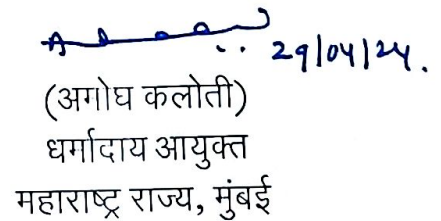 29/04/24.
(अगोघ कलोती)
धर्मादाय आयुक्त
महाराष्ट्र राज्य, मुंबई